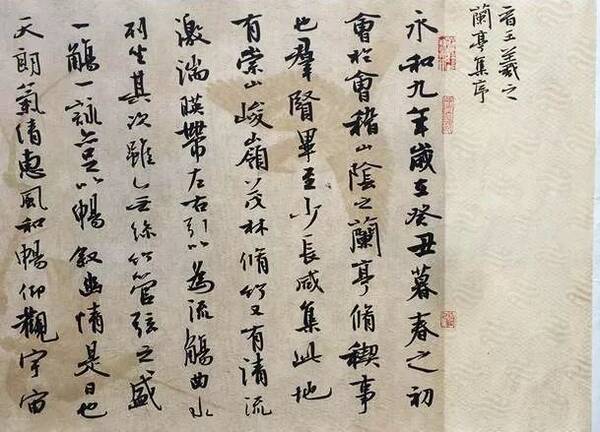 晋王羲之
蘭亭集序
永和九年歲在癸丑暮春之初
會於會稽山陰之蘭亭脩稧事
也羣賢畢至少長咸集此地
有崇山峻嶺茂林脩竹又有清流
激湍暎帶左右引以為流觴曲水
列坐其次雖無絲竹管弦之盛
一觴一詠亦足以暢敘幽情是日也
天朗氣清惠風和暢仰觀宇宙